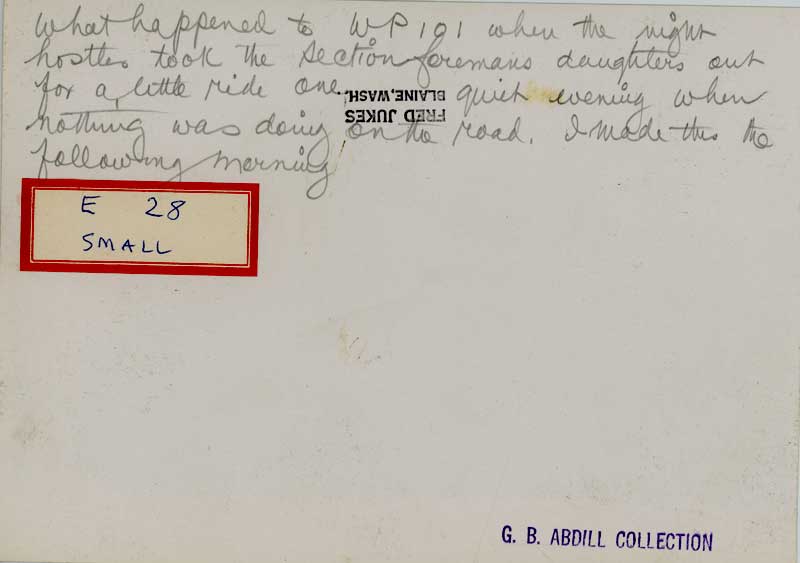 What happened to WP 101 when the night
hostler took the section foremans daughters out
for a little ride one quiet evening when
nothing was doing on the road. I made this the
following morning
FRED JUKES
BLAINE, WASH.
E 28
SMALL
G. B. ABDILL COLLECTION